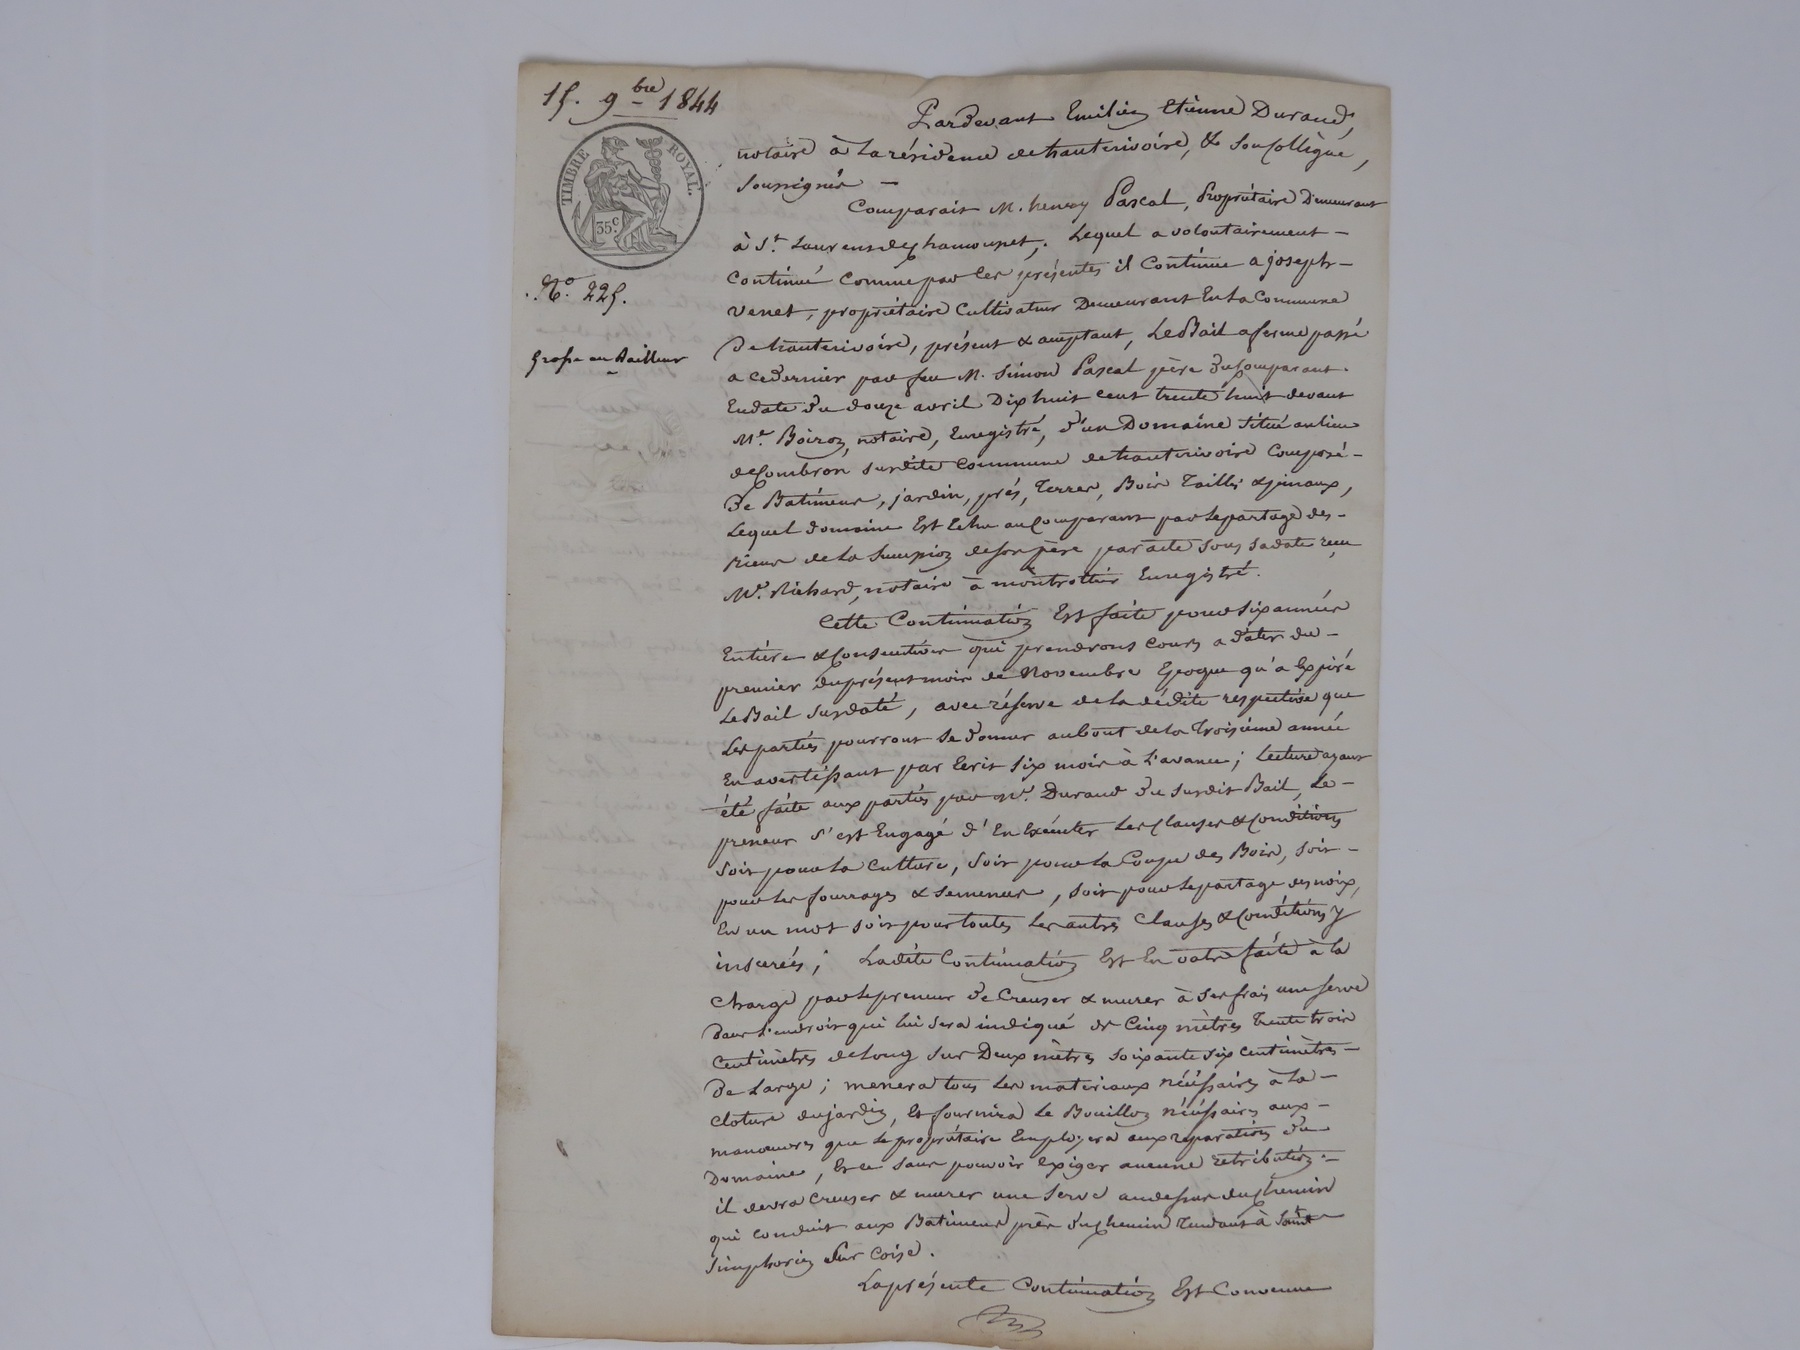 15. 9bre 1844
TIMBRE ROYAL.
35c
No. 225.
Grosse au Bailleur
Pardevant Emilien Etienne Durand,
notaire à la résidence de hauterivoire, & son collègue,
soussignés —
Comparait M. henry Pascal, Propriétaire Demeurant
à St. Laurent de Chamousset; Lequel a volontairement —
continué comme par les présentes il Continue a joseph —
Venet, propriétaire Cultivateur Demeurant En la Commune
De hauterivoire, présent & acceptant, Le Bail a ferme passé
a ce dernier par feu M. Simon Pascal père du Comparant.
En date du douze avril Dix huit cent trente huit devant
Me. Boiron, notaire, Enregistré, d'un Domaine situé au lieu
de Combron susdite commune de hauterivoire Composé —
De Batimens, jardin, prés, Terres, Bois Taillis & pinaux,
Lequel domaine Est Echu au Comparant par le partage des —
Biens de la Succession de son père par acte sous sa date reçu
Me. Richard, notaire à montrottier Enregistré.
Cette Continuation Est faite pour six années
Entières & Consécutives qui prendrons cours a dater du —
premier du présent mois de Novembre Epoque qu'a Expiré
Le Bail susdaté, avec réserve de la dédite respective que
Les parties pourront se donner au bout de la Troisième année
En avertissant par Ecrit six mois à l'avance; Lecture ayant
été faite aux parties par Me. Durand du susdit Bail, Le —
preneur s'est Engagé d'En Exécuter Les Clauses & Conditions
soit pour La Culture, soit pour La Coupe des Bois, soit —
pour Les fourrages & semences, soit pour le partage des noix,
En un mot soit pour toutes Les autres Clauses & Conditions y
insérées; Ladite Continuation Est En outre faite à la
charge par le preneur De Creuser & murer à ses frais une serve
Dans L'endroit qui lui sera indiqué de Cinq mètres Trente trois
Centimètres de Long sur Deux mètres soixante six centimètres —
De Large; menera tous Les matériaux nécéssaires à La —
cloture du jardin, Et fournira Le Bouillon nécéssaires aux —
manoeuvres que Le propriétaire Employera aux réparations du
Domaine, Et ce sans pouvoir Exiger aucune rétribution. —
il devra Creuser & murer une serve au dessus du Chemin
qui conduit aux Batimens près du Chemin Tendant à Saint
Simphorien Sur Coise.
La présente Continuation Est Convenue